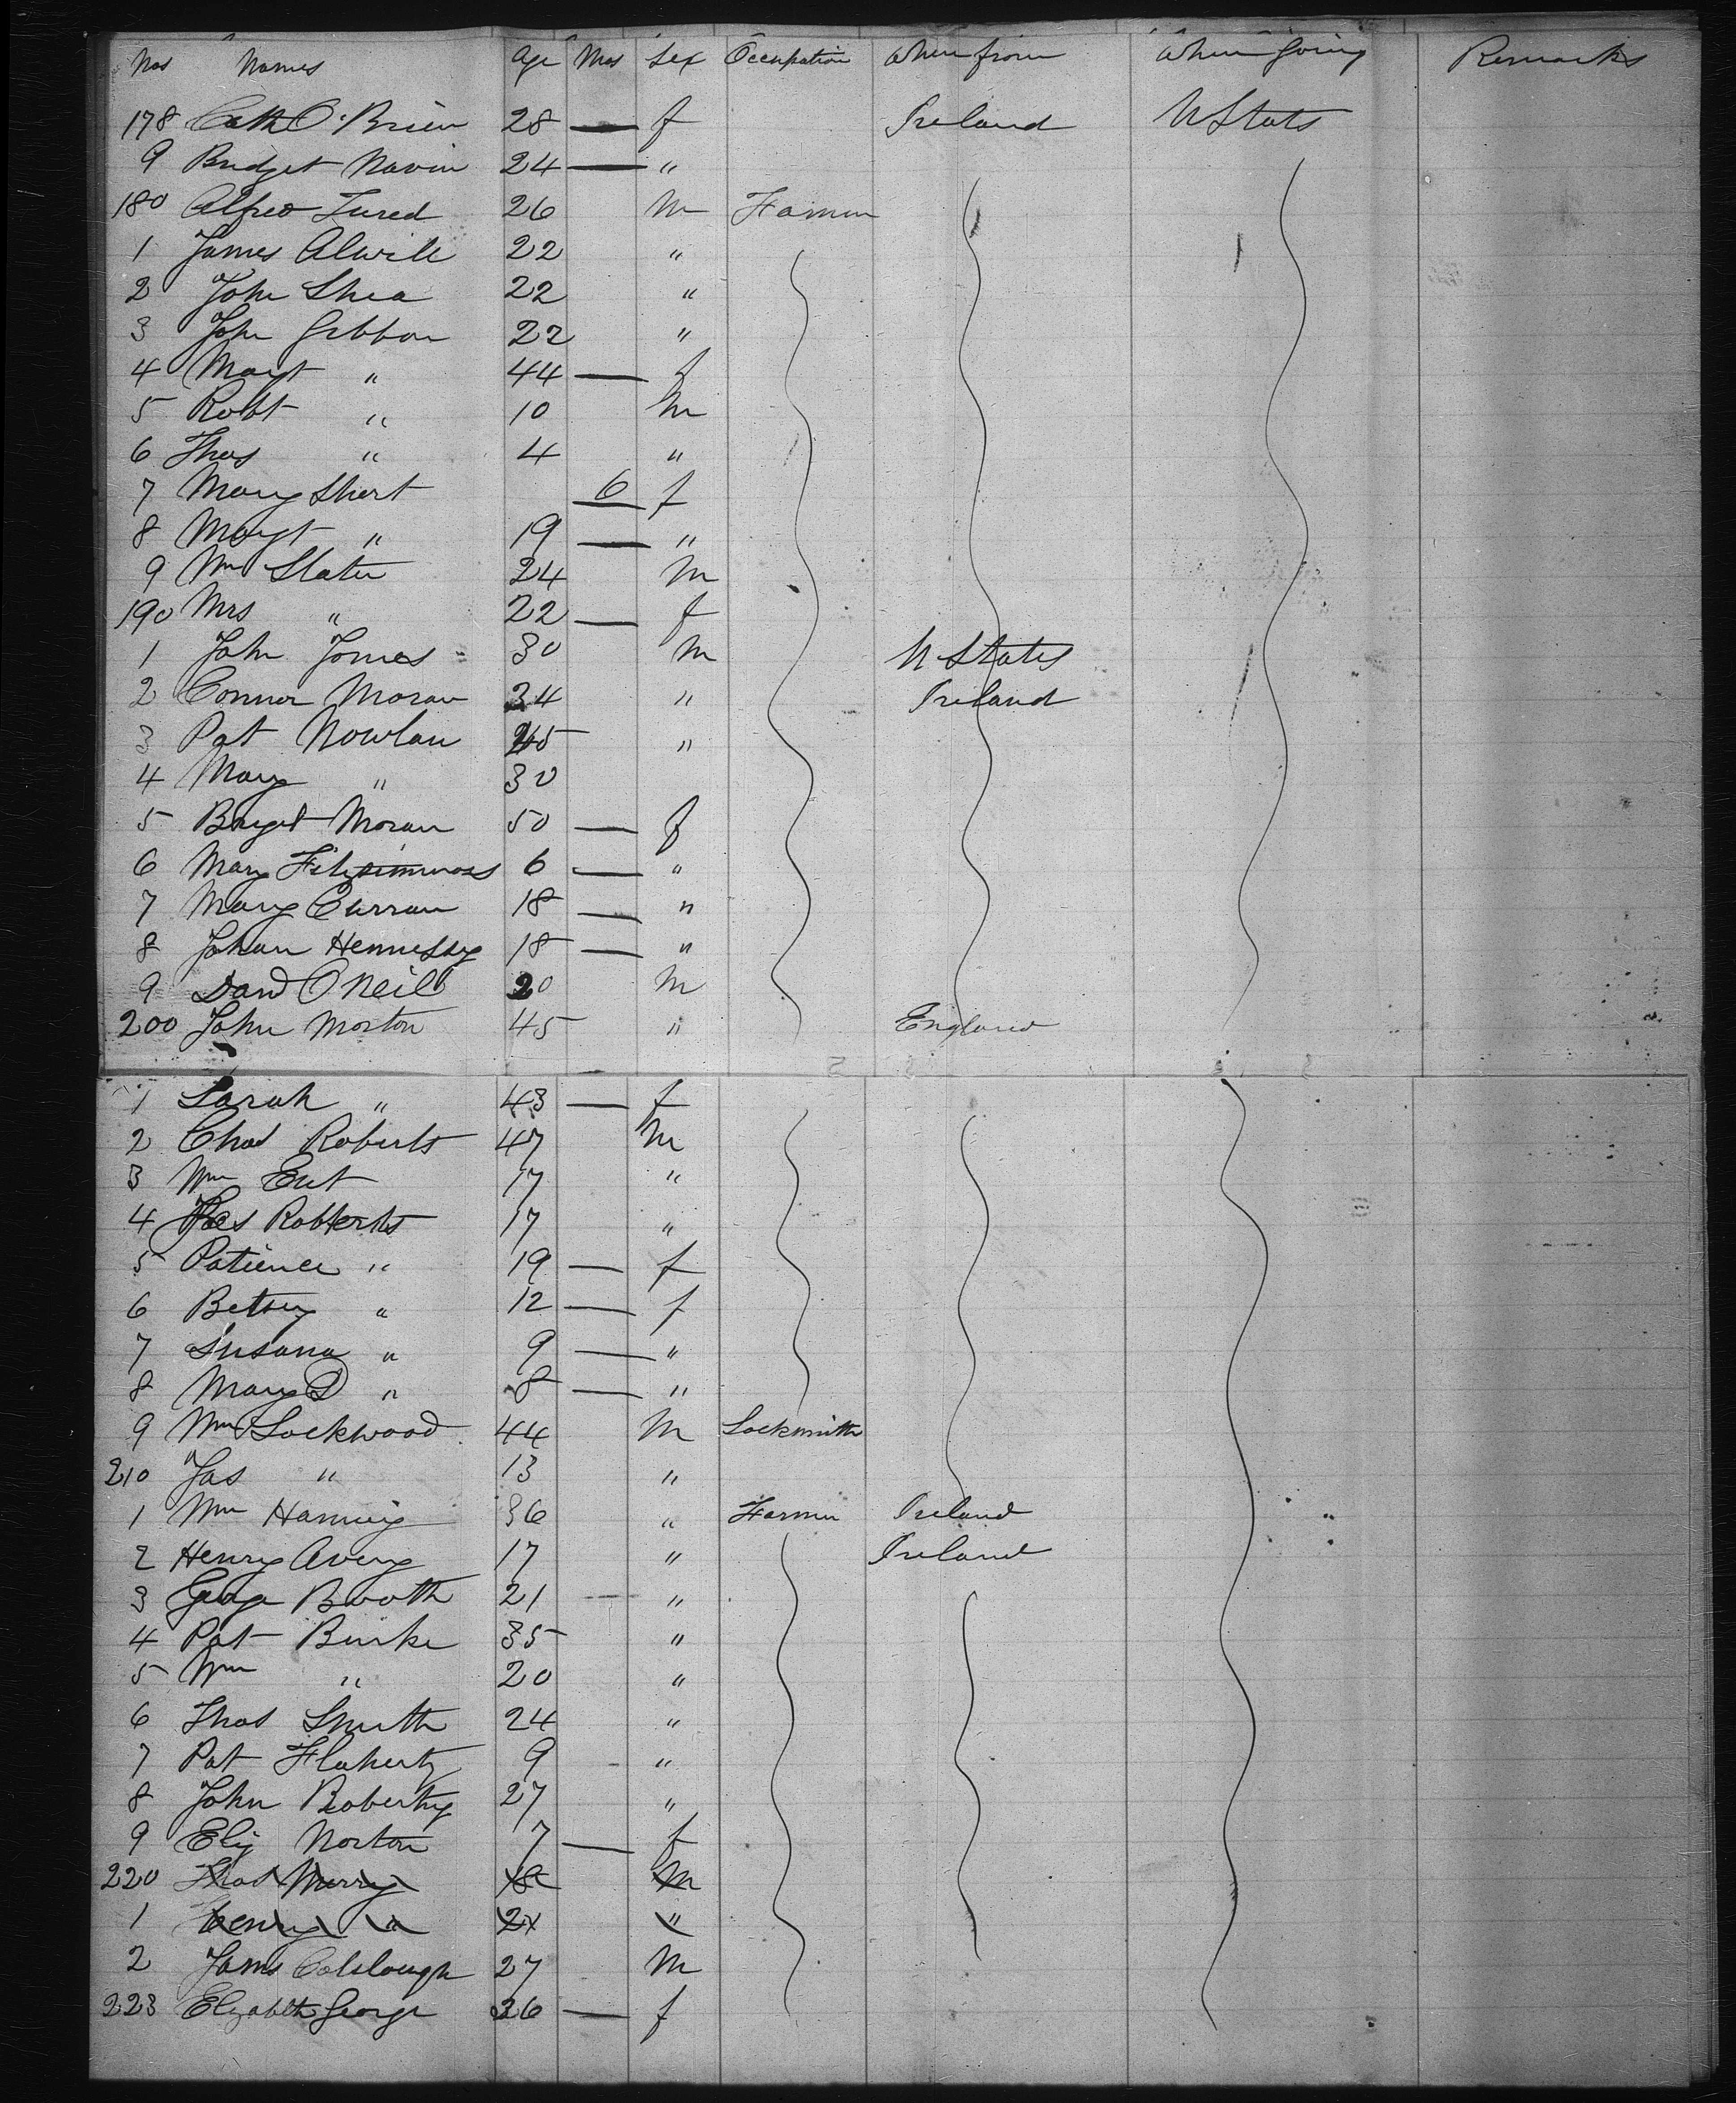 Nos Names Age Mos Sex Occupation Where from Where going Remarks
178 Cath O'Brien 28 — f Ireland U States
9 Bridget Navin 24 — "
180 Alfred 26 M Farmer
1 James Alwill 22 "
2 John Shea 22 "
3 John Gibbon 22 "
4 Margt " 44 — f
5 Robt " 10 M
6 Thos " 4 "
7 Mary Short 6 f
8 Margt " 19 — "
9 Wm Slater 24 M
190 Mrs " 22 — f
1 John Jones 30 M U States
2 Connor Moran 34 " Ireland
3 Pat Nowlan 45 "
4 Mary " 30
5 Briget Moran 50 — f
6 Mary Fitzsimmons 6 — "
7 Mary Curran 18 — "
8 Johan Hennessy 18 — "
9 David O'Neill 20 M
200 John Morton 45 " England
1 Sarah " 43 — f
2 Chas Roberts 47 M
3 Wm Ent 17 "
4 Roberts 17 "
5 Patience " 19 — f
6 Betsey " 12 — f
7 Susana " 9 — "
8 Mary D " 8 — "
9 Wm Lockwood 44 M Locksmith
210 Jas " 13 "
1 Wm Haning 36 " Farmer Ireland
2 Henry Avery 17 " Ireland
3 George Booth 21 "
4 Pat Burke 35 "
5 Wm " 20 "
6 Thos Smith 24 "
7 Pat Flaherty 9 "
8 John Roberty 27 "
9 Eliz Norton 7 — f
220 Thos Murry M
1 Henry " "
2 James Colclough 27 M
223 Elizabeth George 36 — f